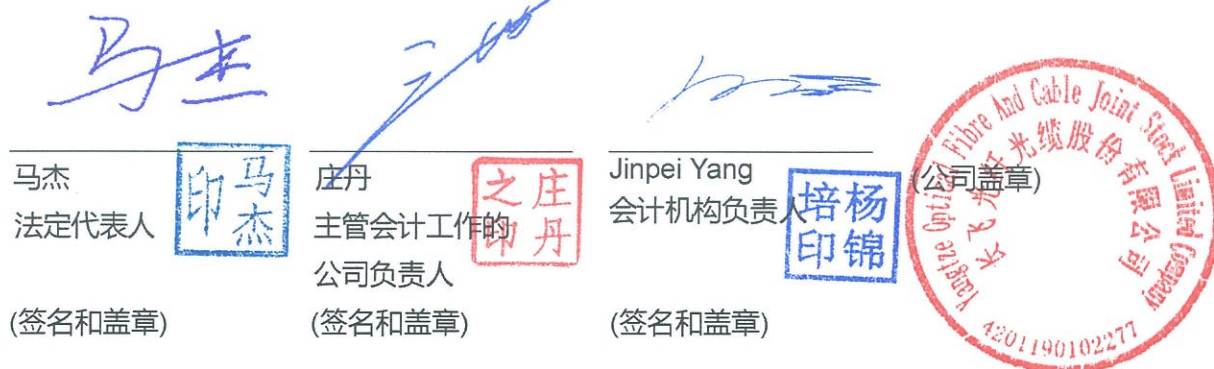 马杰
马杰
法定代表人
(签名和盖章)
马杰
印
庄丹
主管会计工作的
公司负责人
(签名和盖章)
庄丹
之印
Jinpei Yang
会计机构负责人
(签名和盖章)
杨锦
培印
(公司盖章)
Yangtze Optical Fibre And Cable Joint Stock Limited Company
长飞光纤光缆股份有限公司
4201190102277